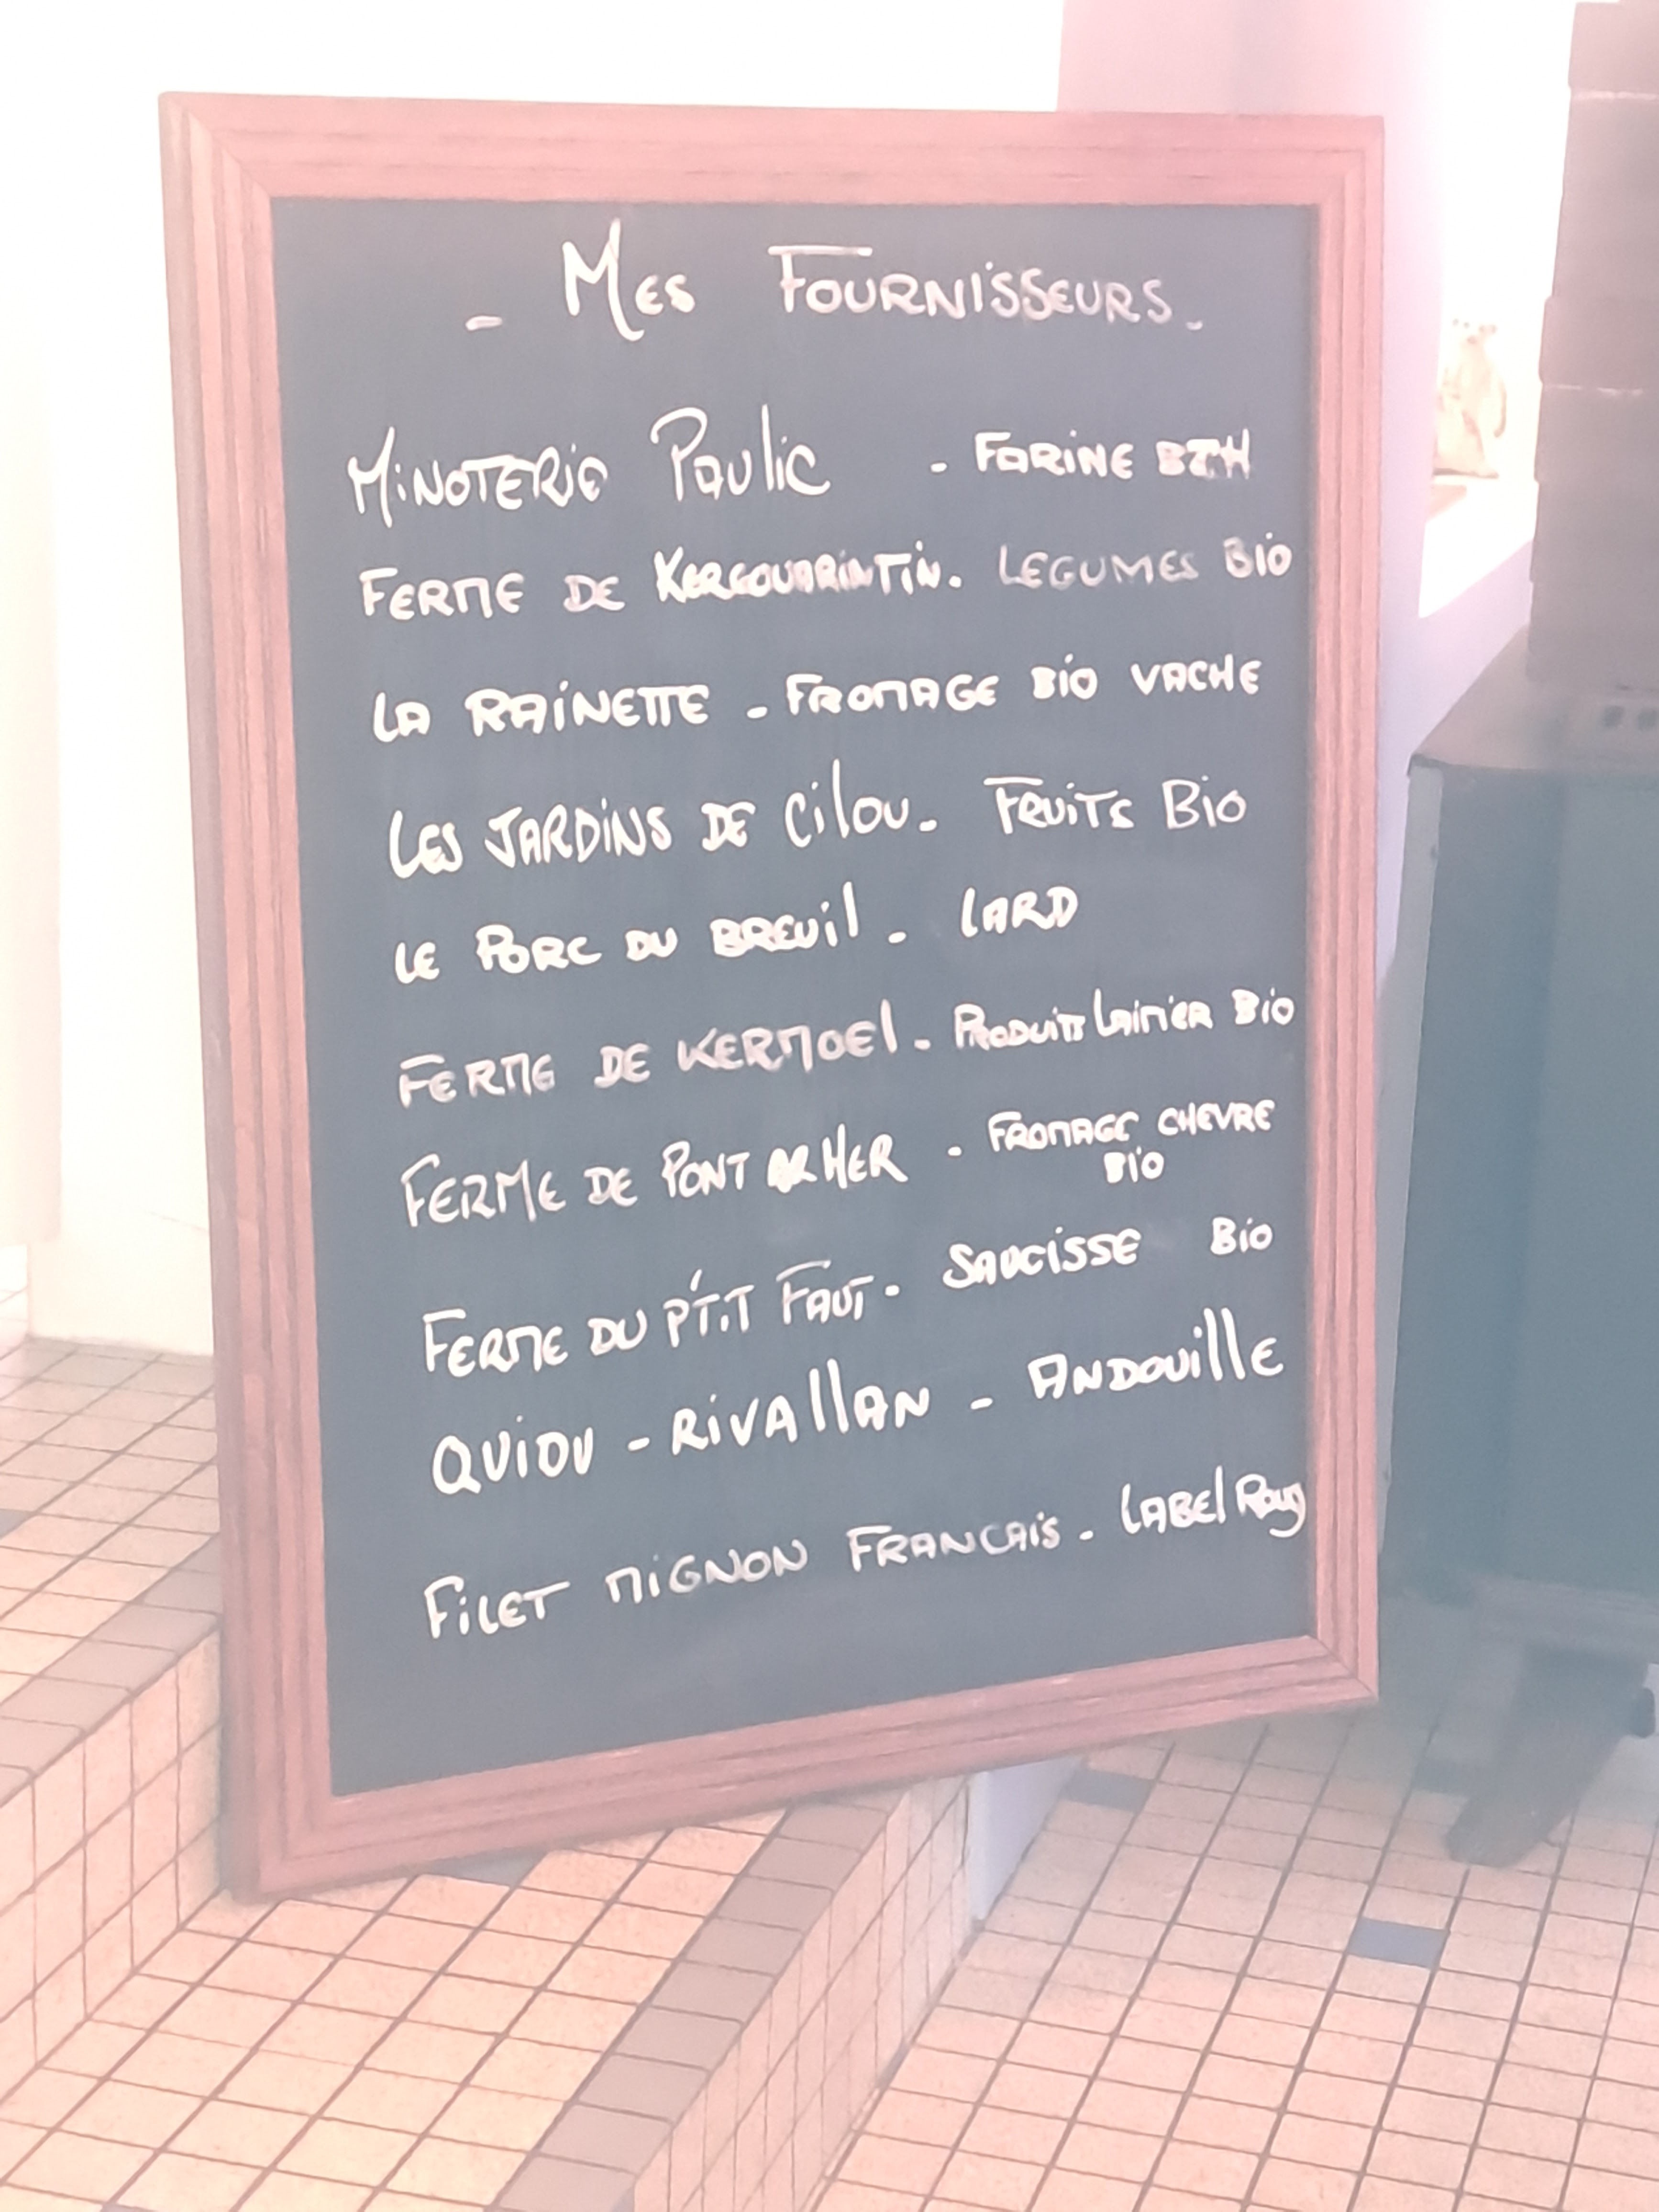 - Mes Fournisseurs -
Minoterie Paulic - Farine BZH
Ferme de Kergouarintin. Legumes Bio
La Rainette - Fromage Bio Vache
Les Jardins de Cilou - Fruits Bio
Le Porc du Breuil - Lard
Ferme de Kermoel - Produits Laitier Bio
Ferme de Pont ar Her - Fromage Chevre
Bio
Ferme du P'tit Faut - Saucisse Bio
Quidu - Rivallan - Andouille
Filet Mignon Francais - Label Roug